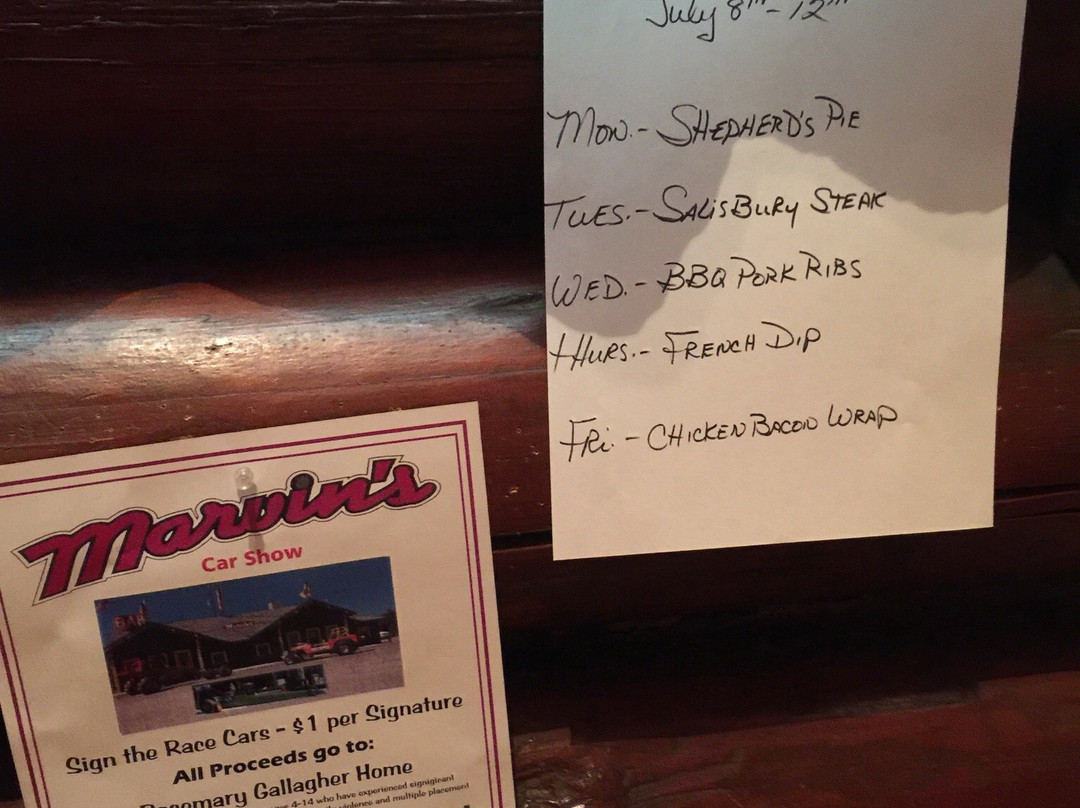 July 8th - 12th
Mon. - Shepherd's Pie
Tues. - Salisbury Steak
Wed. - BBQ Pork Ribs
Thurs. - French Dip
Fri. - Chicken Bacon Wrap
Marvin's
Car Show
BAR
Sign the Race Cars - $1 per Signature
All Proceeds go to:
Rosemary Gallagher Home
4-14 who have experienced signigicant
violence and multiple placement